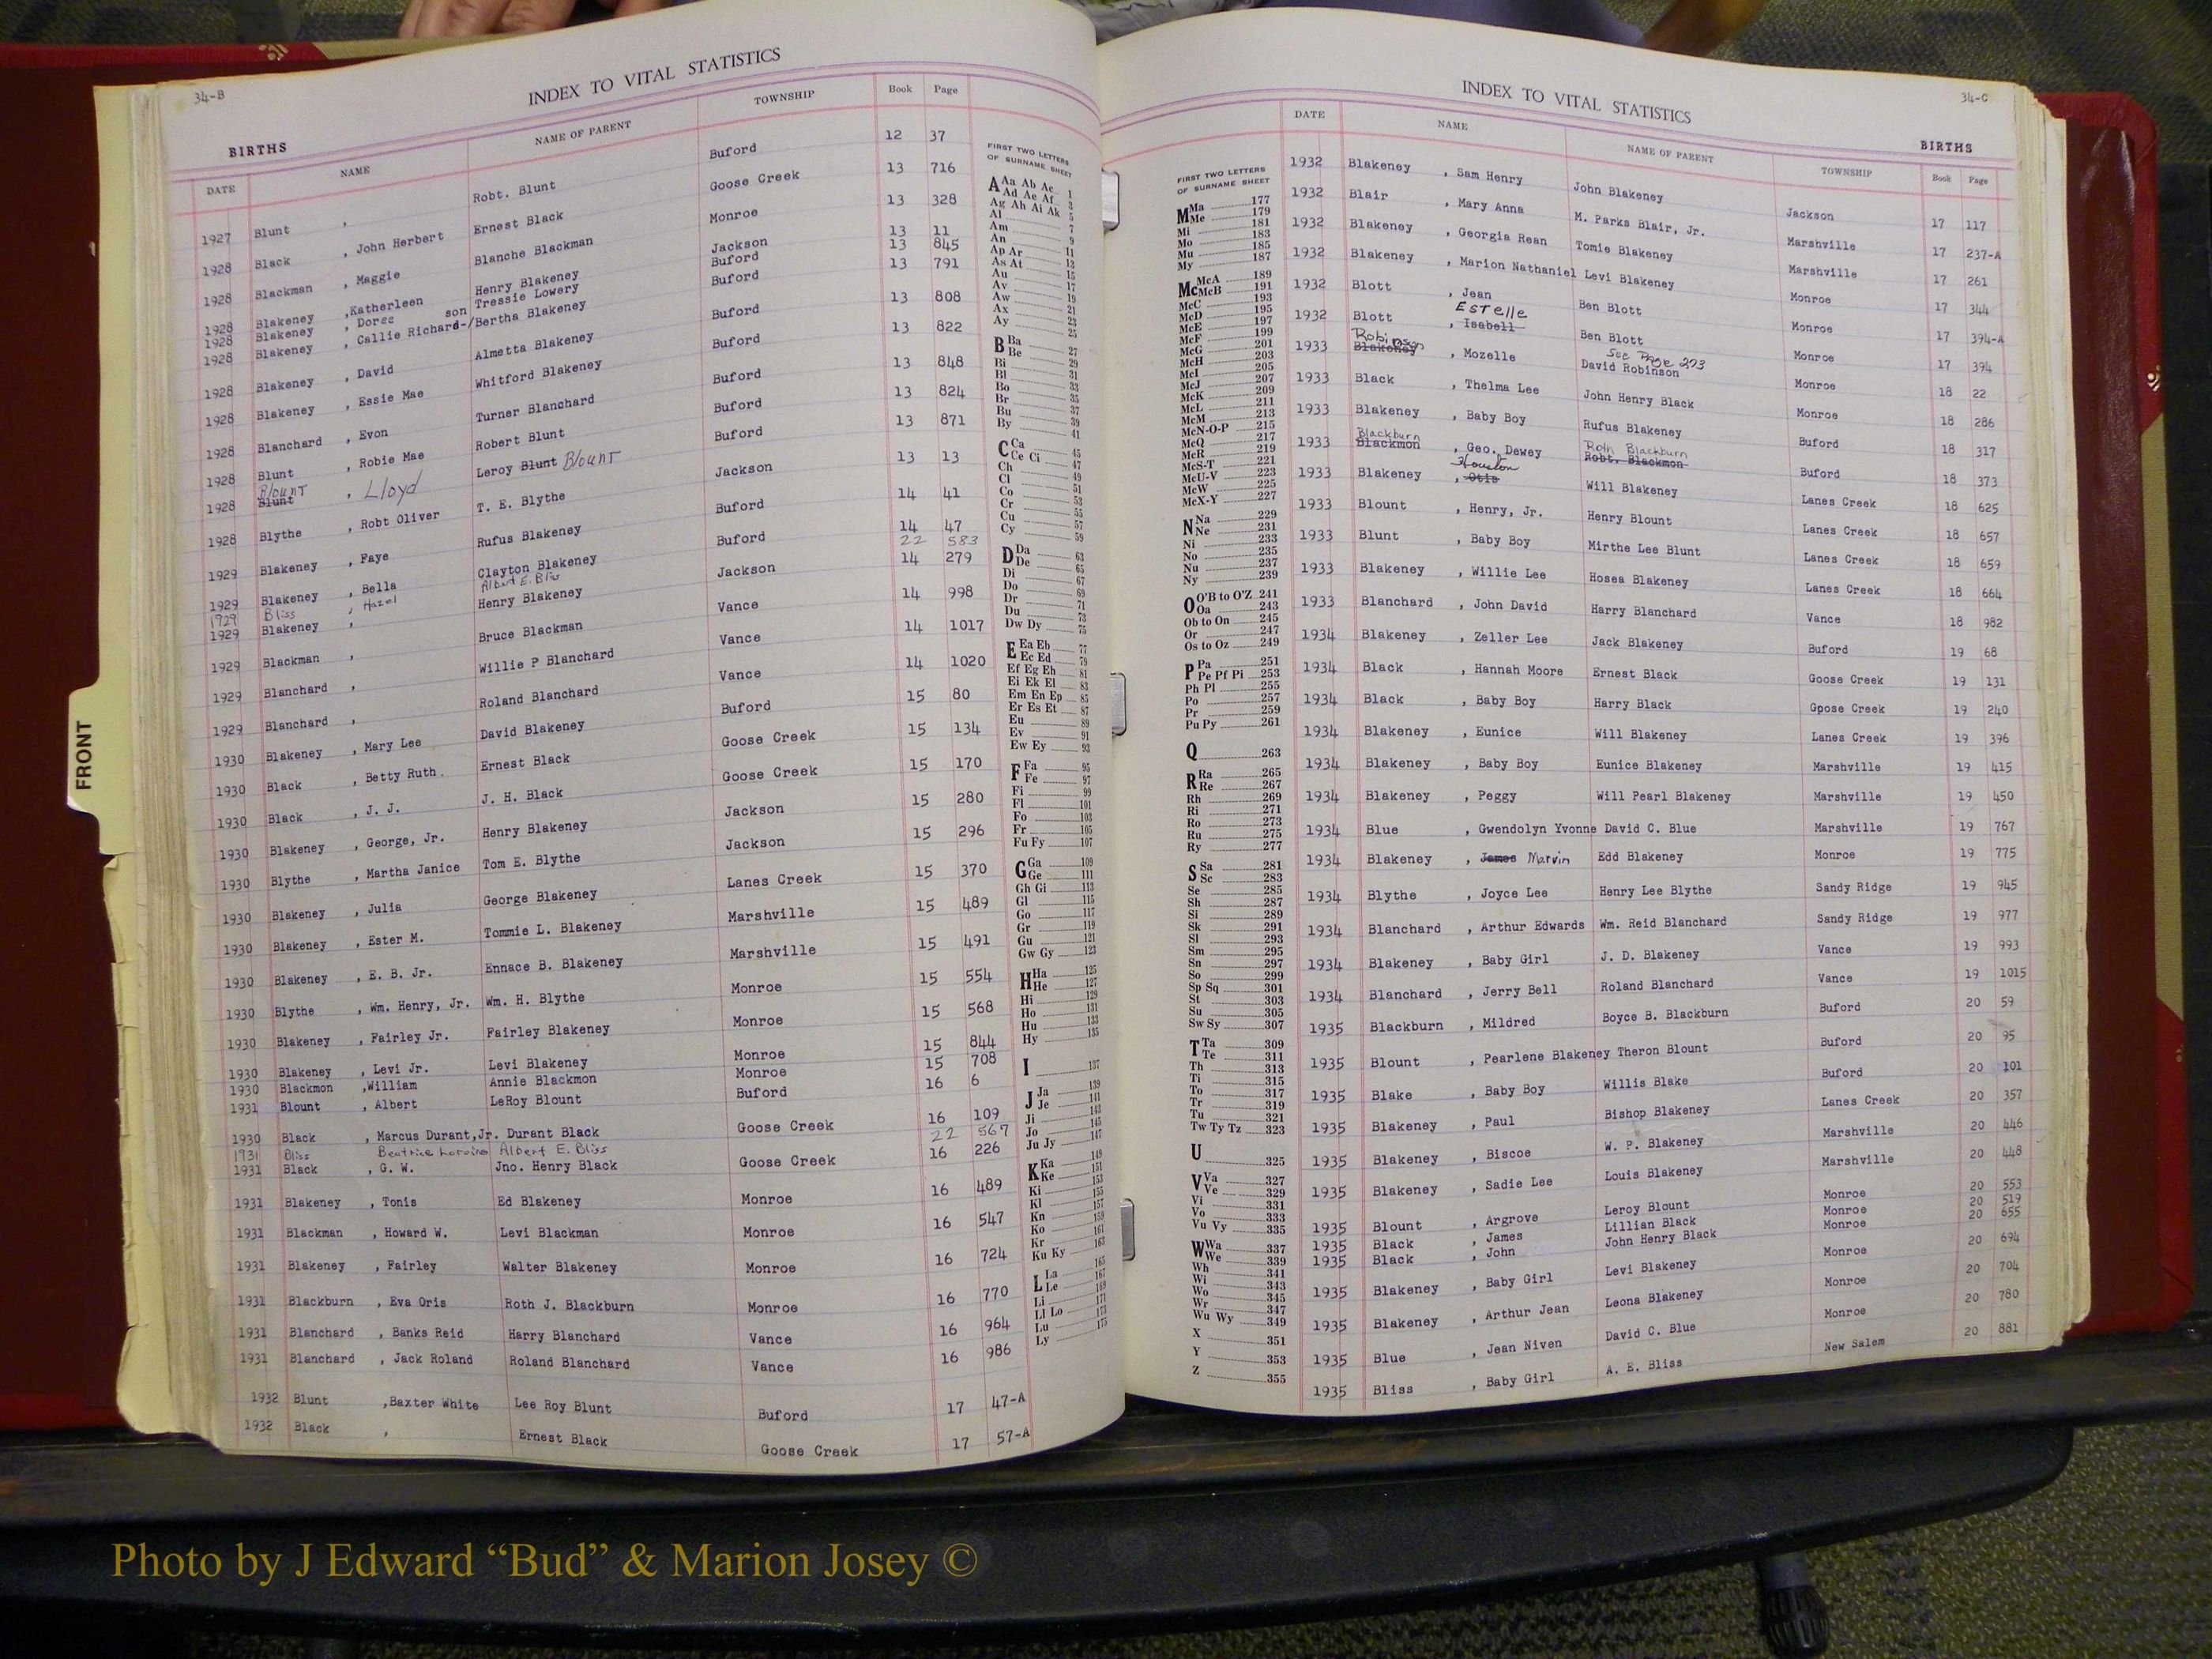 34-B
INDEX TO VITAL STATISTICS
BIRTHS
DATE NAME NAME OF PARENT TOWNSHIP Book Page
1927 Blunt , Robt. Blunt Buford 12 37
1928 Black , John Herbert Ernest Black Goose Creek 13 716
1928 Blackman , Maggie Blanche Blackman Monroe 13 328
1928 Blakeney ,Katherleen Henry Blakeney Jackson 13 11
1928 Blakeney , Doree son Tressie Lowery Buford 13 845
1928 Blakeney , Callie Richard-/Bertha Blakeney Buford 13 791
1928 Blakeney , David Almetta Blakeney Buford 13 808
1928 Blakeney , Essie Mae Whitford Blakeney Buford 13 822
1928 Blanchard , Evon Turner Blanchard Buford 13 848
1928 Blunt , Robie Mae Robert Blunt Buford 13 824
1928 Blount Blunt , Lloyd Leroy Blunt Blount Buford 13 871
1928 Blythe , Robt Oliver T. E. Blythe Jackson 13 13
1929 Blakeney , Faye Rufus Blakeney Buford 14 41
1929 Blakeney , Bella Clayton Blakeney Buford 14 47
1929 Bliss , Hazel Albert E. Bliss 22 583
1929 Blakeney , Henry Blakeney Jackson 14 279
1929 Blackman , Bruce Blackman Vance 14 998
1929 Blanchard , Willie P Blanchard Vance 14 1017
1929 Blanchard , Roland Blanchard Vance 14 1020
1930 Blakeney , Mary Lee David Blakeney Buford 15 80
1930 Black , Betty Ruth. Ernest Black Goose Creek 15 134
1930 Black , J. J. J. H. Black Goose Creek 15 170
1930 Blakeney , George, Jr. Henry Blakeney Jackson 15 280
1930 Blythe , Martha Janice Tom E. Blythe Jackson 15 296
1930 Blakeney , Julia George Blakeney Lanes Creek 15 370
1930 Blakeney , Ester M. Tommie L. Blakeney Marshville 15 489
1930 Blakeney , E. B. Jr. Ennace B. Blakeney Marshville 15 491
1930 Blythe , Wm. Henry, Jr. Wm. H. Blythe Monroe 15 554
1930 Blakeney , Fairley Jr. Fairley Blakeney Monroe 15 568
1930 Blakeney , Levi Jr. Levi Blakeney Monroe 15 844
1930 Blackmon ,William Annie Blackmon Monroe 15 708
1931 Blount , Albert LeRoy Blount Buford 16 6
1930 Black , Marcus Durant,Jr. Durant Black Goose Creek 16 109
1931 Bliss Beatrice Loraine Albert E. Bliss 22 567
1931 Black , G. W. Jno. Henry Black Goose Creek 16 226
1931 Blakeney , Tonis Ed Blakeney Monroe 16 489
1931 Blackman , Howard W. Levi Blackman Monroe 16 547
1931 Blakeney , Fairley Walter Blakeney Monroe 16 724
1931 Blackburn , Eva Oris Roth J. Blackburn Monroe 16 770
1931 Blanchard , Banks Reid Harry Blanchard Vance 16 964
1931 Blanchard , Jack Roland Roland Blanchard Vance 16 986
1932 Blunt ,Baxter White Lee Roy Blunt Buford 17 47-A
1932 Black , Ernest Black Goose Creek 17 57-A
FIRST TWO LETTERS
OF SURNAME SHEET
A Aa Ab Ac 1
Ad Ae Af 3
Ag Ah Ai Ak 5
Al 7
Am 9
An 11
Ap Ar 13
As At 15
Au 17
Av 19
Aw 21
Ax 23
Ay 25
B Ba 27
Be 29
Bi 31
Bl 33
Bo 35
Br 37
Bu 39
By 41
C Ca 45
Ce Ci 47
Ch 49
Cl 51
Co 53
Cr 55
Cu 57
Cy 59
D Da 63
De 65
Di 67
Do 69
Dr 71
Du 73
Dw Dy 75
E Ea Eb 77
Ec Ed 79
Ef Eg Eh 81
Ei Ek El 83
Em En Ep 85
Er Es Et 87
Eu 89
Ev 91
Ew Ey 93
F Fa 95
Fe 97
Fi 99
Fl 101
Fo 103
Fr 105
Fu Fy 107
G Ga 109
Ge 111
Gh Gi 113
Gl 115
Go 117
Gr 119
Gu 121
Gw Gy 123
H Ha 125
He 127
Hi 129
Ho 131
Hu 133
Hy 135
I 137
J Ja 139
Je 141
Ji 143
Jo 145
Ju Jy 147
K Ka 149
Ke 151
Ki 153
Kl 155
Kn 157
Ko 159
Kr 161
Ku Ky 163
L La 165
Le 167
Li 169
Ll Lo 171
Lu 173
Ly 175
FRONT
34-C
INDEX TO VITAL STATISTICS
BIRTHS
FIRST TWO LETTERS
OF SURNAME SHEET
M Ma 177
Me 179
Mi 181
Mo 183
Mu 185
My 187
Mc McA 189
McB 191
McC 193
McD 195
McE 197
McF 199
McG 201
McH 203
McI 205
McJ 207
McK 209
McL 211
McM 213
McN-O-P 215
McQ 217
McR 219
McS-T 221
McU-V 223
McW 225
McX-Y 227
N Na 229
Ne 231
Ni 233
No 235
Nu 237
Ny 239
O O'B to O'Z 241
Oa 243
Ob to On 245
Or 247
Os to Oz 249
P Pa 251
Pe Pf Pi 253
Ph Pl 255
Po 257
Pr 259
Pu Py 261
Q 263
R Ra 265
Re 267
Rh 269
Ri 271
Ro 273
Ru 275
Ry 277
S Sa 281
Sc 283
Se 285
Sh 287
Si 289
Sk 291
Sl 293
Sm 295
Sn 297
So 299
Sp Sq 301
St 303
Su 305
Sw Sy 307
T Ta 309
Te 311
Th 313
Ti 315
To 317
Tr 319
Tu 321
Tw Ty Tz 323
U 325
V Va 327
Ve 329
Vi 331
Vo 333
Vu Vy 335
W Wa 337
We 339
Wh 341
Wi 343
Wo 345
Wr 347
Wu Wy 349
X 351
Y 353
Z 355
DATE NAME NAME OF PARENT TOWNSHIP Book Page
1932 Blakeney , Sam Henry John Blakeney Jackson 17 117
1932 Blair , Mary Anna M. Parks Blair, Jr. Marshville 17 237-A
1932 Blakeney , Georgia Rean Tomie Blakeney Marshville 17 261
1932 Blakeney , Marion Nathaniel Levi Blakeney Monroe 17 344
1932 Blott , Jean Ben Blott Monroe 17 394-A
1932 Blott Estelle , Isabell Ben Blott Monroe 17 394
1933 Robinson Blakeney , Mozelle See Page 273 David Robinson Monroe 18 22
1933 Black , Thelma Lee John Henry Black Monroe 18 286
1933 Blakeney , Baby Boy Rufus Blakeney Buford 18 317
1933 Blackburn Blackmon , Geo. Dewey Roth Blackburn Robt. Blackmon Buford 18 373
1933 Blakeney Houston , Otis Will Blakeney Lanes Creek 18 625
1933 Blount , Henry, Jr. Henry Blount Lanes Creek 18 657
1933 Blunt , Baby Boy Mirthe Lee Blunt Lanes Creek 18 659
1933 Blakeney , Willie Lee Hosea Blakeney Lanes Creek 18 664
1933 Blanchard , John David Harry Blanchard Vance 18 982
1934 Blakeney , Zeller Lee Jack Blakeney Buford 19 68
1934 Black , Hannah Moore Ernest Black Goose Creek 19 131
1934 Black , Baby Boy Harry Black Gpose Creek 19 240
1934 Blakeney , Eunice Will Blakeney Lanes Creek 19 396
1934 Blakeney , Baby Boy Eunice Blakeney Marshville 19 415
1934 Blakeney , Peggy Will Pearl Blakeney Marshville 19 450
1934 Blue , Gwendolyn Yvonne David C. Blue Marshville 19 767
1934 Blakeney , James Marvin Edd Blakeney Monroe 19 775
1934 Blythe , Joyce Lee Henry Lee Blythe Sandy Ridge 19 945
1934 Blanchard , Arthur Edwards Wm. Reid Blanchard Sandy Ridge 19 977
1934 Blakeney , Baby Girl J. D. Blakeney Vance 19 993
1934 Blanchard , Jerry Bell Roland Blanchard Vance 19 1015
1935 Blackburn , Mildred Boyce B. Blackburn Buford 20 59
1935 Blount , Pearlene Blakeney Theron Blount Buford 20 95
1935 Blake , Baby Boy Willis Blake Buford 20 101
1935 Blakeney , Paul Bishop Blakeney Lanes Creek 20 357
1935 Blakeney , Biscoe W. P. Blakeney Marshville 20 446
1935 Blakeney , Sadie Lee Louis Blakeney Marshville 20 448
1935 Blount , Argrove Leroy Blount Monroe 20 553
1935 Black , James Lillian Black Monroe 20 519
1935 Black , John John Henry Black Monroe 20 655
1935 Blakeney , Baby Girl Levi Blakeney Monroe 20 694
1935 Blakeney , Arthur Jean Leona Blakeney Monroe 20 704
1935 Blue , Jean Niven David C. Blue Monroe 20 780
1935 Bliss , Baby Girl A. E. Bliss New Salem 20 881
Photo by J Edward “Bud” & Marion Josey ©